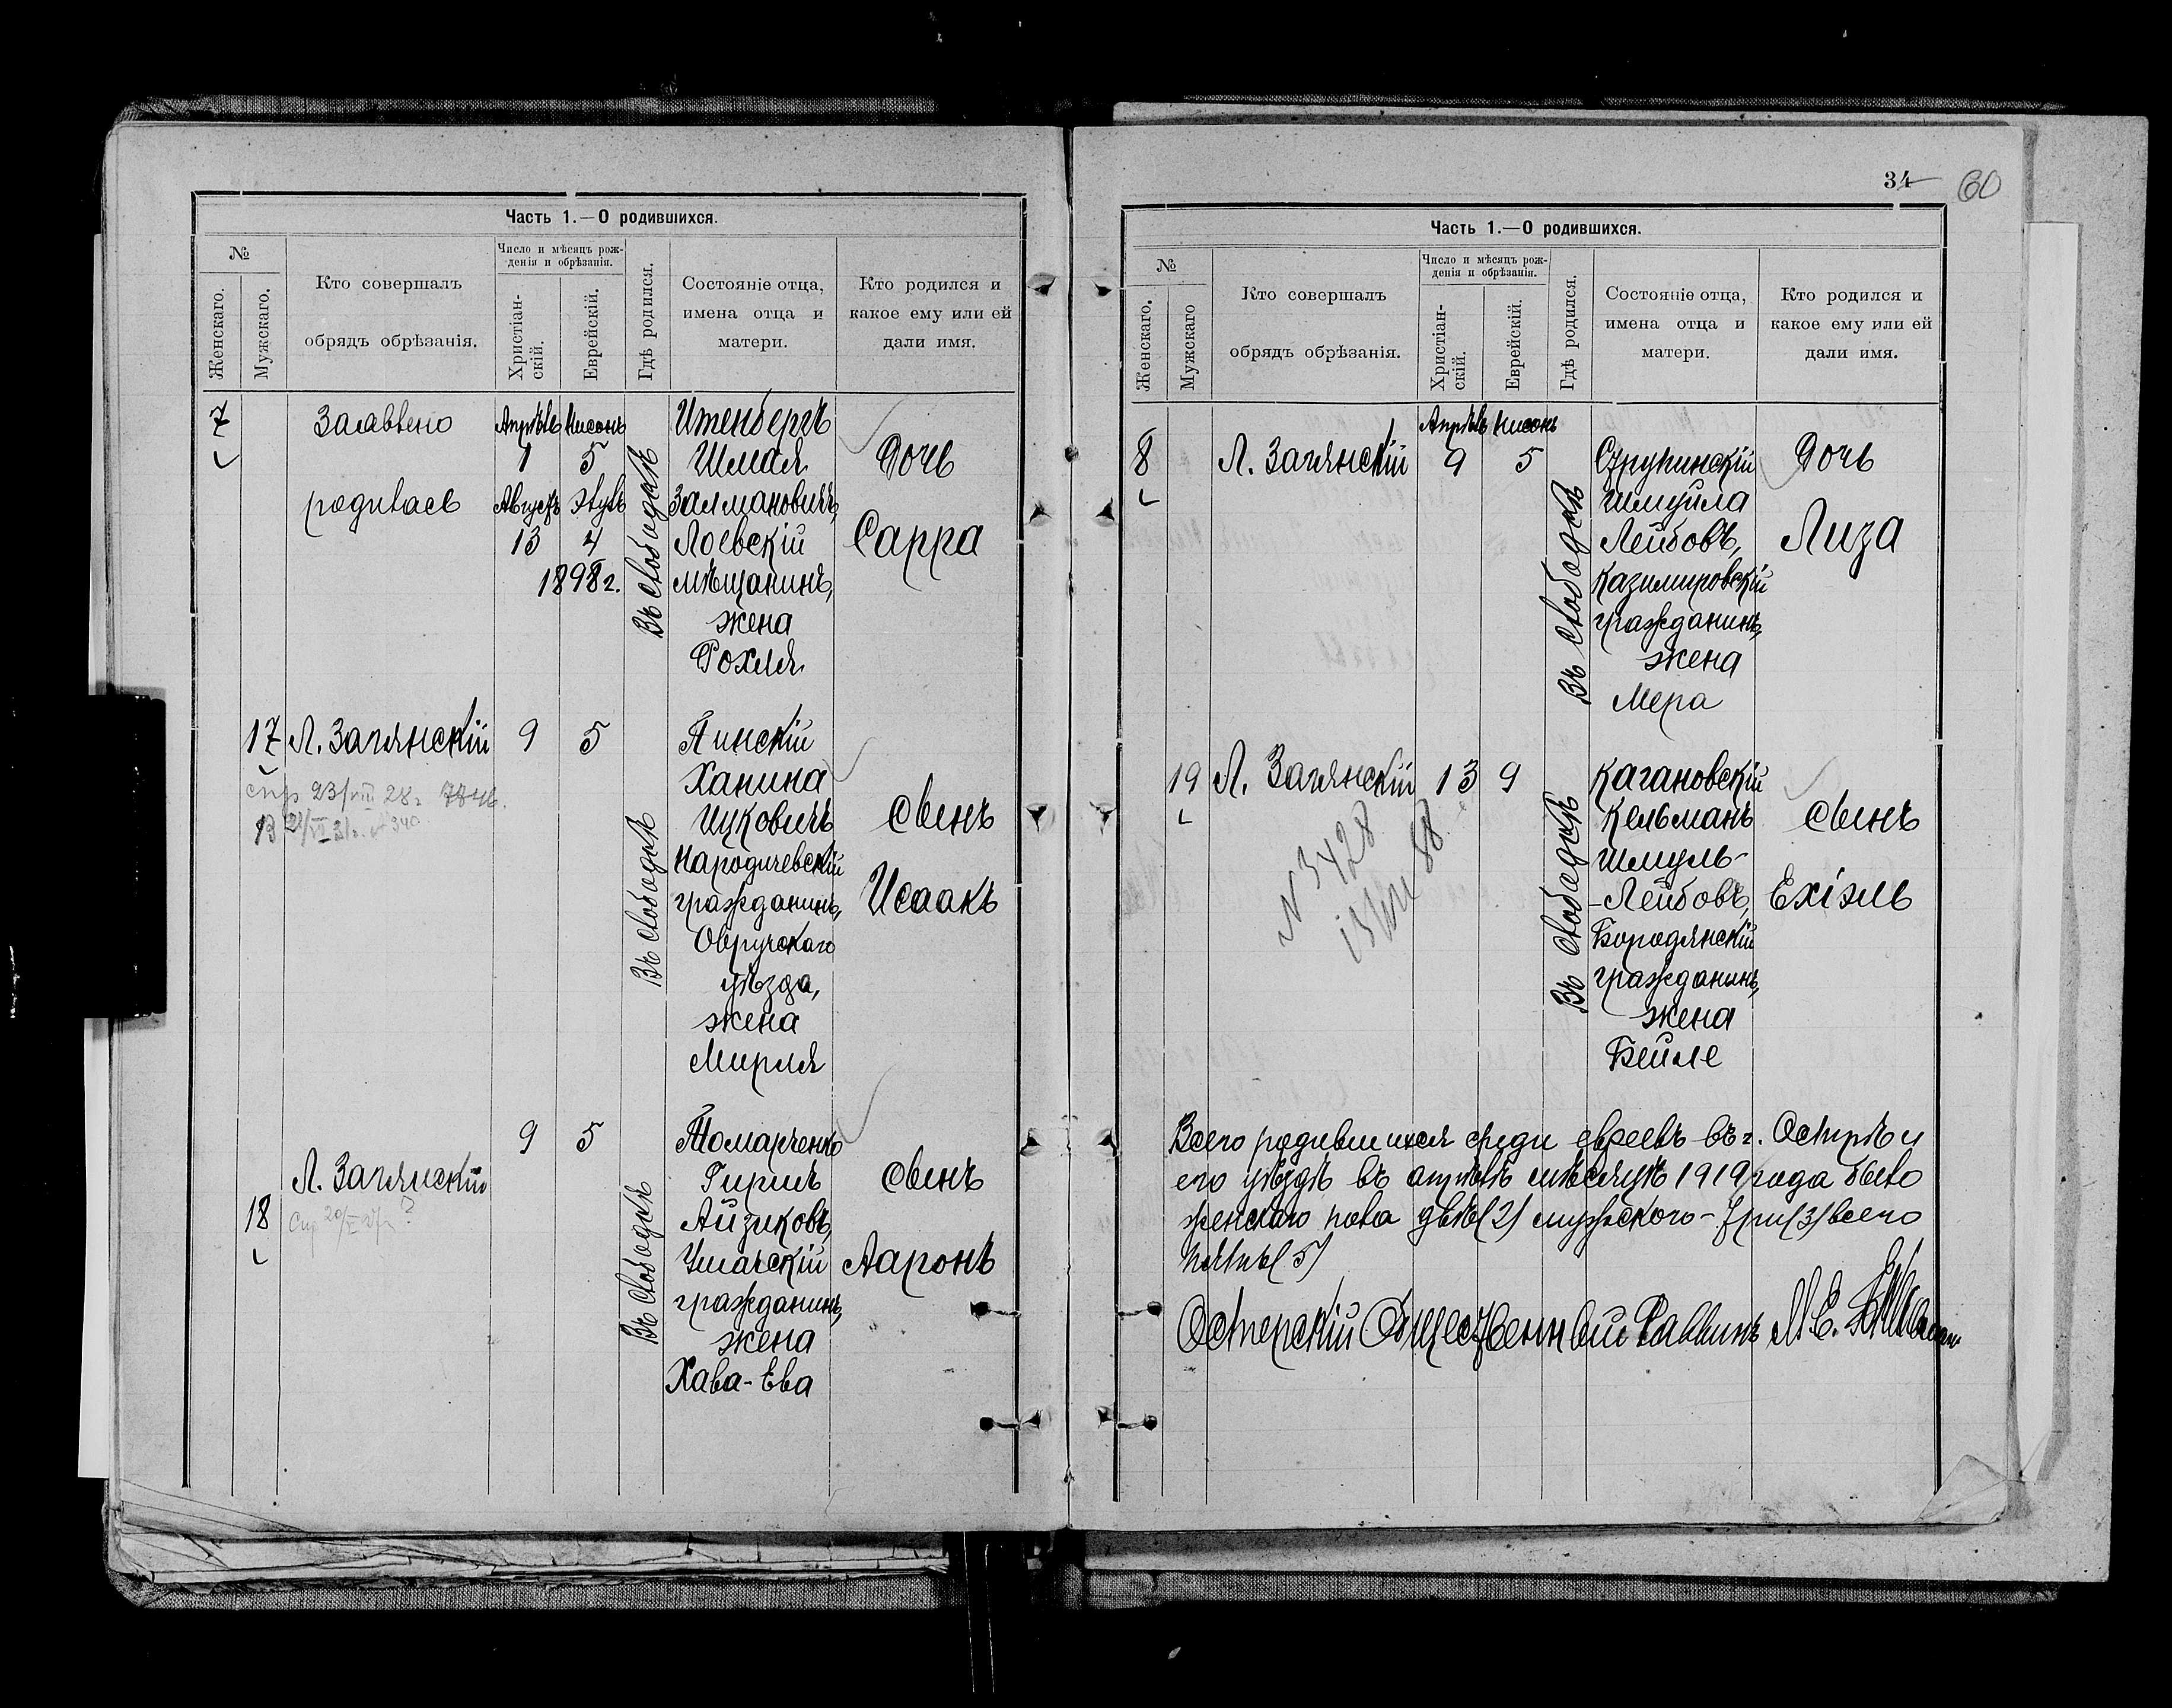 Часть 1.—О родившихся.
№
Женскаго.
Мужскаго.
Кто совершалъ
обрядъ обрѣзанія.
Число и мѣсяцъ рож-
денія и обрѣзанія.
Христіан-
скій.
Еврейскій.
Гдѣ родился.
Состояніе отца,
имена отца и
матери.
Кто родился и
какое ему или ей
дали имя.
7
Заявлено
родилась
Апрѣль Нисонъ
1 5
Августъ Элулъ
13 4
1898 г.
Въ Слободкѣ
Итенбергъ
Шмая
Залмановичъ,
Лоевскій
мѣщанинъ,
жена
Рохля
Дочь
Сарра
17 Л. Загянскій 9 5
Въ Слободкѣ
Пинскій
Ханина
Ицковичъ
Народичевскій
гражданинъ,
Овручскаго
уѣзда,
жена
Мирля
Сынъ
Исаакъ
18
Л. Загянскій
9 5
Въ Слободкѣ
Томарченко
Гиршъ
Айзиковъ,
Чмачскій
гражданинъ,
жена
Хава-Ева
Сынъ
Ааронъ
34
60
Часть 1.—О родившихся.
№
Женскаго.
Мужскаго
Кто совершалъ
обрядъ обрѣзанія.
Число и мѣсяцъ рож-
денія и обрѣзанія.
Христіан-
скій.
Еврейскій.
Гдѣ родился.
Состояніе отца,
имена отца и
матери.
Кто родился и
какое ему или ей
дали имя.
Апрѣль Нисонъ
8 Л. Загянскій 9 5
Въ Слободкѣ
Струпинскій
Шмуйла
Лейбовъ,
Казимировскій
гражданинъ,
жена
Мера
Дочь
Лиза
19 Л. Загянскій 13 9
N 3428
Въ Слободкѣ
Кагановскій
Кельманъ
Шмуль-
-Лейбовъ,
Бородянскій
гражданинъ,
жена
Бейле
Сынъ
Ехіэль
Всего родившихся среди евреевъ въ г. Острѣ и
его уѣздѣ въ апрѣлѣ мѣсяцѣ 1919 года было
женскаго пола двѣ (2) мужского - три (3) всего
пять (5)
Остерскій Общественный Раввинъ М. Е.